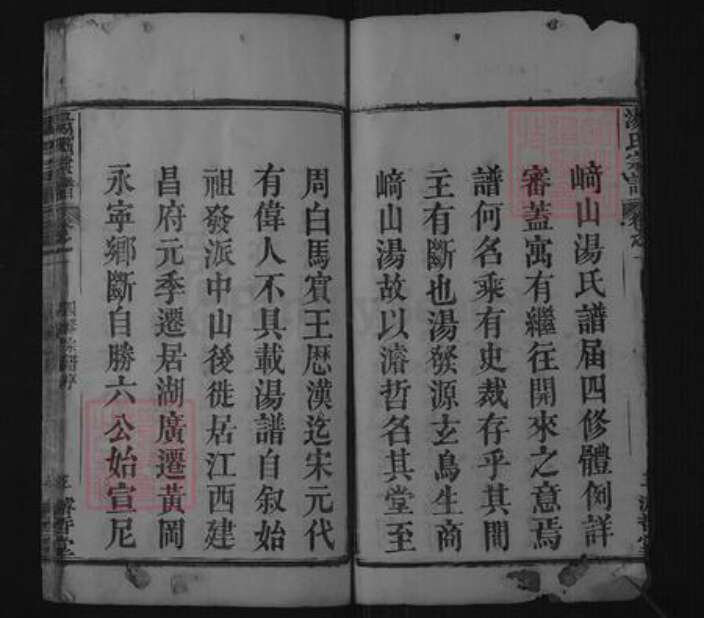 湯氏宗譜
卷之一
﨑山湯氏譜届四修體例詳
審蓋寓有繼往開來之意焉
譜何名乘有史裁存乎其間
主有斷也湯發源玄鳥生商
﨑山湯故以濬哲名其堂至
周白馬賓王歷漢迄宋元代
有偉人不具載湯譜自叙始
祖發派中山後徙居江西建
昌府元季遷居湖廣遷黃岡
永寧鄉斷自勝六公始宣尼